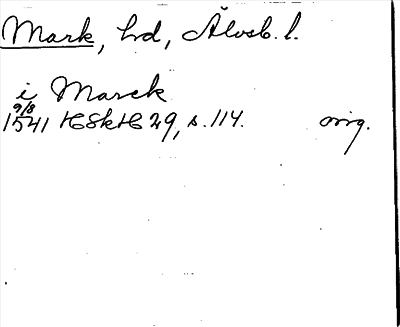 Mark, hd, Älvsb. l.
i Marck
9/8
1541 HSkH 29, s. 114. orig.